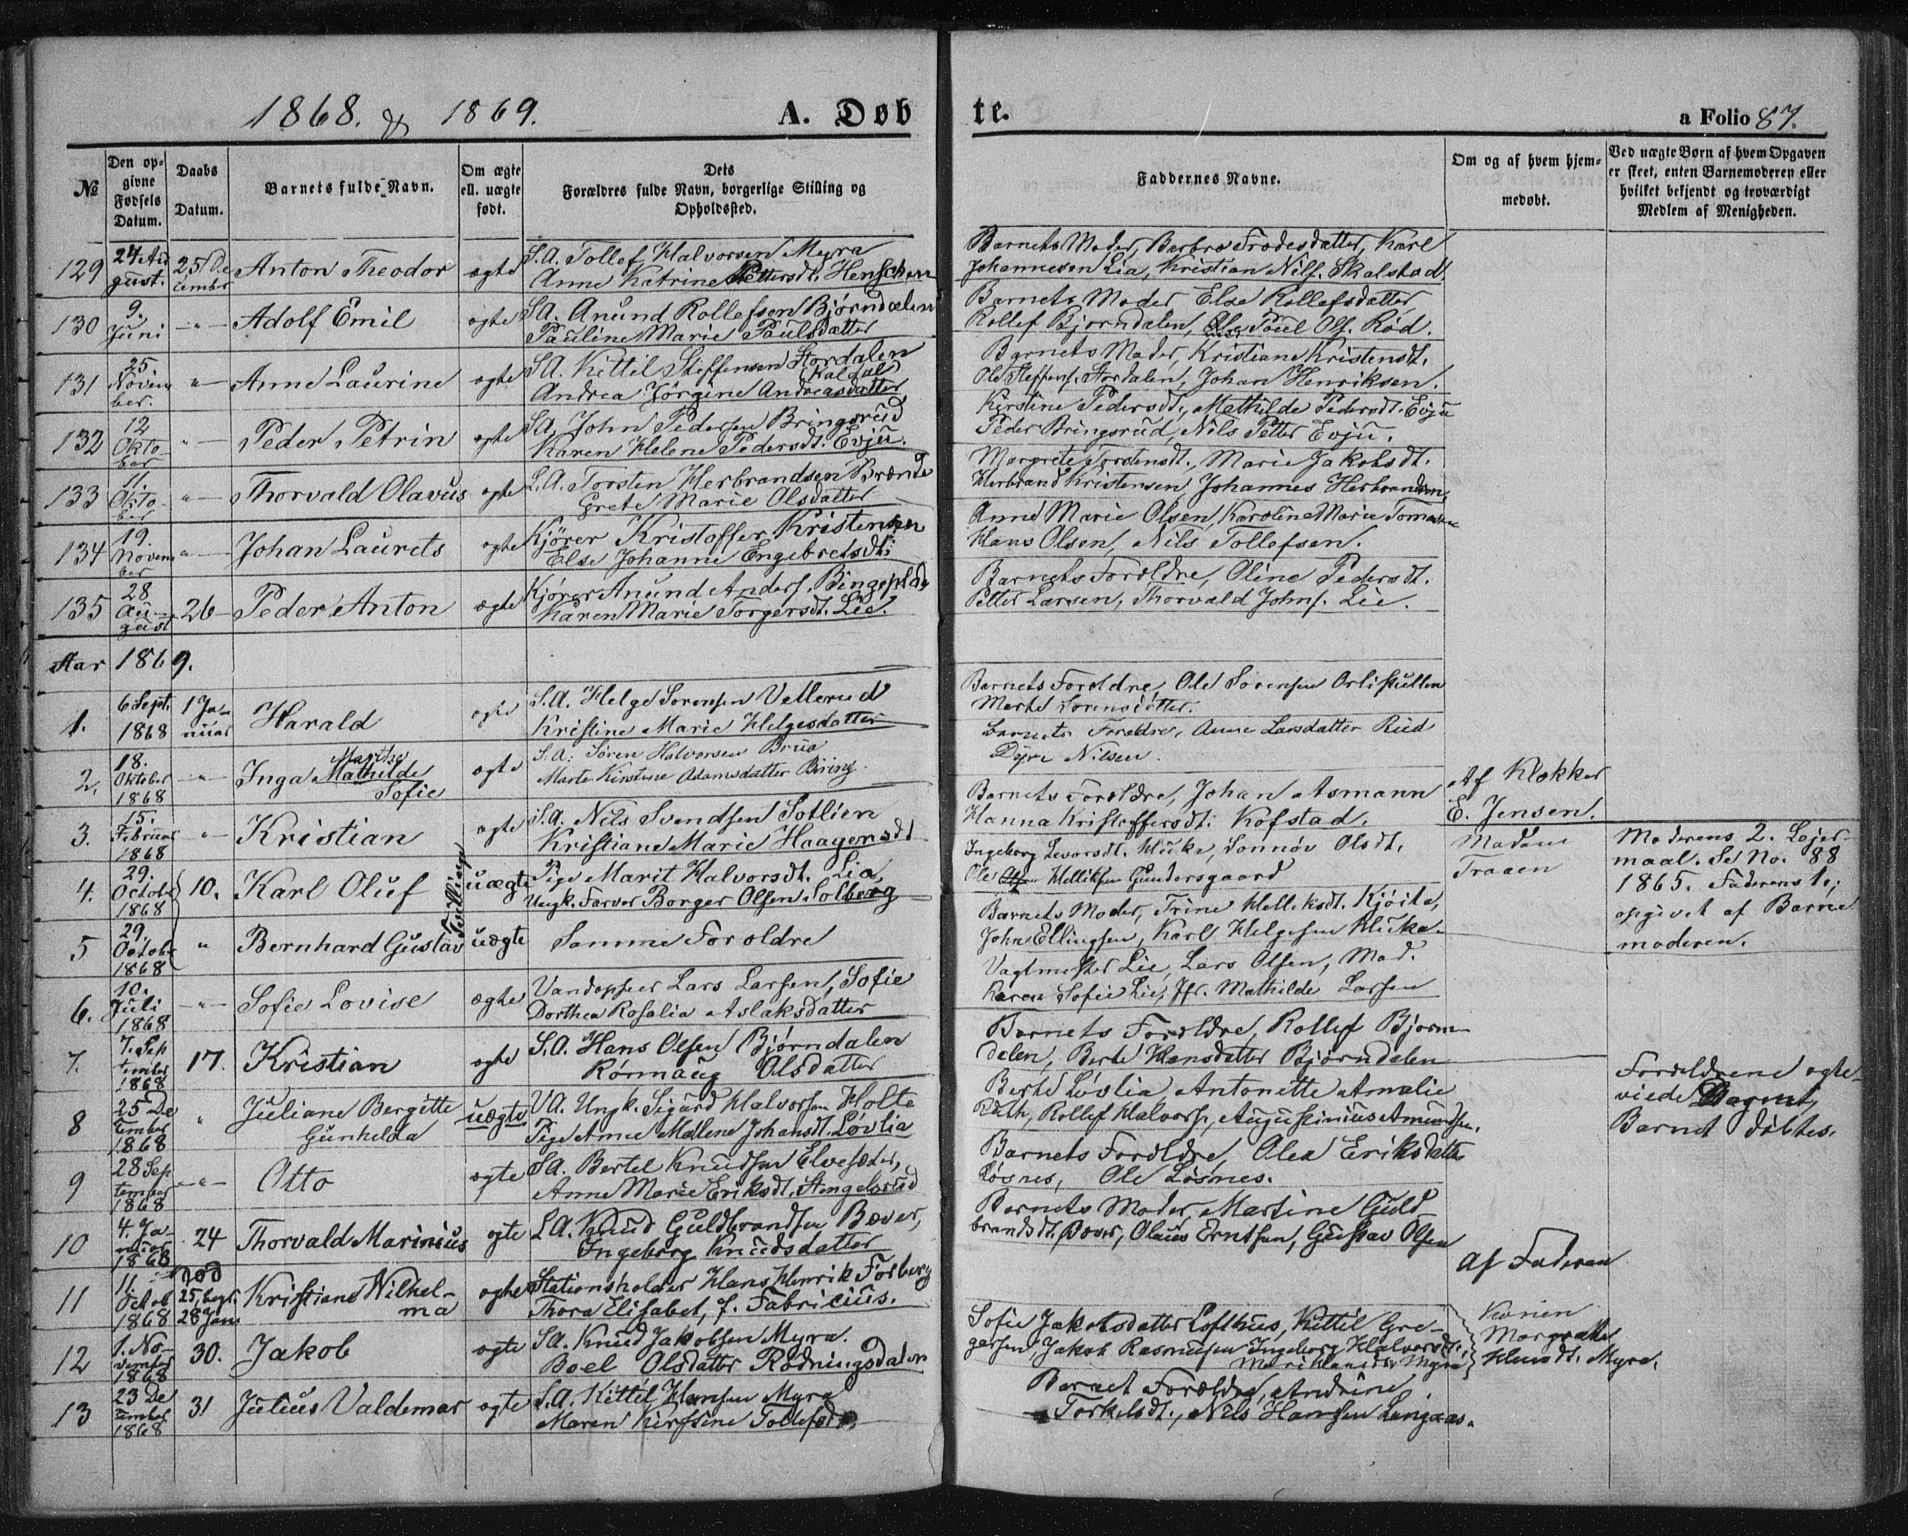 1868. & 1869.
A. Døb
te.
a Folio 87.
№
Den op-
givne
Fødsels
Datum.
Daabs
Datum.
Barnets fulde Navn.
Om ægte
ell. uægte
født.
Dets
Forældres fulde Navn, borgerlige Stilling og
Opholdssted.
Faddernes Navne.
Om og af hvem hjem-
medøbt.
Ved uægte Børn af hvem Opgaven
er skeet, enten Barnemoderen eller
hvilket bekjendt og troværdigt
Medlem af Menigheden.
129
24 Au
gust.
25 De
cember
Anton Theodor
ægte
S.A. Tollef Halvorsen Myra
Anne Katrine Pettersdt. Henschen
Barnets Moder, Barbro Frodesdatter, Karl
Johannesen Lia, Kristian Nils. Skalstad
130
9.
Juni
-"-
Adolf Emil
ægte
S.A. Anund Rollefsen Bjørndalen
Pauline Marie Paulsdatter
Barnets Moder Else Rollefsdatter
Rollef Bjørndalen, Poul Ols. Rød.
131
25
Novem
ber.
"-
Anne Laurine
ægte
S.A. Kittil Steffensen Stordalen
(Kaldal
Andrea Jørgine Andreasdatter
Barnets Moder, Kristiane Kristensdt.
Ole Steffens. Stordalen, Johan Henriksen.
132
12
Okto-
ber
"-
Peder Petrin
ægte
SA. John Pedersen Bringsrud
Karen Helene Pedersdt. Evju.
Kirstine Pedersdt., Mathilde Pedersdt. Evju
Peder Bringsrud, Nils Petter Evju.
133
11.
Okto-
ber
"-
Thorvald Olavus
ægte
L.A. Torsten Herbrandsen Brænde
Grete Marie Olsdatter
Margrete Torstensdt., Marie Jakobsdt.
Herbrand Kristensen, Johannes Herbrandsen,
134
19.
Novem
ber
"-
Johan Laurets
ægte
Kjører Kristoffer Kristensen
Else Johanne Engebretsdt.
Anne Marie Olsen, Karoline Marie
Hans Olsen, Nils Tollefsen.
135
28
Au-
gust
26
Peder Anton
ægte
Kjører Anund Anders. Bingeplads
Karen Marie Torgersdt. Lie.
Barnets Forældre, Oline Pedersdt.
Petter Larsen, Thorvald Johns. Lie.
Aar 1869.
1.
6 Sept.
1868
1 Ja-
nuar
Harald
ægte
S.A. Helge Sorensen Vellerud
Kristine Marie Helgesdatter
Barnets Forældre, Ole Sørensen
Marte Sorensdatter.
2.
18.
Oktober
1868
-"-
Marthe
Inga Mathilde
Sofie
ægte
S.A. Søren Halvorsen Brua
Marte Kirstine Adamsdatter Biring
Barnets Forældre, Anne Larsdatter Rud
Dyre Nilsen.
3.
15.
Februar
1868
"-
Kristian
ægte
S.A. Nils Svendsen Sollien
Kristiane Marie Haagensdt
Barnets Forældre, Johan Asmann
Hanna Kristoffersdt. Kofstad.
Af Klokker
E. Jensen.
4.
29.
Octobr
1868
10.
Karl Oluf
Tvillinge
uægte
Pige Marit Halvorsdt. Lia,
Ungk. Farver Borger Olsen Solberg
Ingeborg Levorsdt. Huke, Sønnøv Olsdt.
Ole Helliksen Gundersgaard
Madam
Traaen
Moderens 2. Lejer-
maal. Se No. 88
1865. Faderens 1.;
opgivet af Barne
moderen.
5
29.
Octobr
1868
"
Bernhard Gustav
uægte
Samme Forældre
Barnets Moder, Trine Helliksdt. Kjørte,
John Ellingsen, Karl Helgesen Huka.
6.
10.
Juli
1868
-"-
Sofie Lovise
ægte
Vandopseer Lars Larsen, Sofie
Dorthea Rosalia Aslaksdatter
Vagtmester Lie, Lars Olsen, Mad.
Karen Sofie Lie, Jfr. Mathilde Larsen
7.
7. Sep
tember
1868
17.
Kristian
ægte
S.A. Hans Olsen Bjørndalen
Rønnaug Olsdatter
Barnets Forældre, Rollef Bjørn-
dalen, Berte Hansdatter Bjørndalen
8
25 De
cember
1868
"
Juliane Bergitte
Gunhilda
uægte
VA. Ungk. Sigurd Halvorsen Holte
Pige Anne Malene Johansdt. Løvlia
Berte Løvlia, Antonette Amalie
Rollef Halvors, Augustinius Amundsen.
Forældrene ægte-
viede Dagen
Barnet døbtes.
9
28 Sep
tember
1868
-"-
Otto
ægte
SA. Bertel Knudsen Elvesæter,
Anne Marie Eriksdt. Stengelsrud
Barnets Forældre, Olea Eriksdatter
Løsnes, Ole Løsnes.
10
4. Ja
nuar
1868
24
Thorvald Marinius
ægte
L.A. Knud Guldbrandsen Bæver,
Ingeborg Knudsdatter
Barnets Moder, Martine Guld
brandsdt. Bæver, Olaus Erntsen, Gustav Olsen
11
11.
Octob
1868
Død
25, begr.
28 Jan
Kristiane Vilhel-
ma
ægte
Stationsholder Hans Henrik Forberg
Thora Elisabet, f. Fabricius.
Af Faderen
12
1. No-
vember
1868
30.
Jakob
ægte
SA. Knud Jakobsen Myra.
Boel Olsdatter Rødningsdalen
Sofie Jakobsdatter Lofthus, Kittil Gre-
gersen, Jakob Rasmusen, Ingeborg Halvorsdt.
Mari Hansdt. Myra
Konen
Margrethe
Knudsdt. Myra.
13
23 De
cember
1868
31
Julius Valdemar
ægte
S.A. Kittil Hansen Myra
Maren Kirstine Tollefsdt.
Barnet Forældre, Andrine
Torkelsdt., Nils Hansen Langaas.